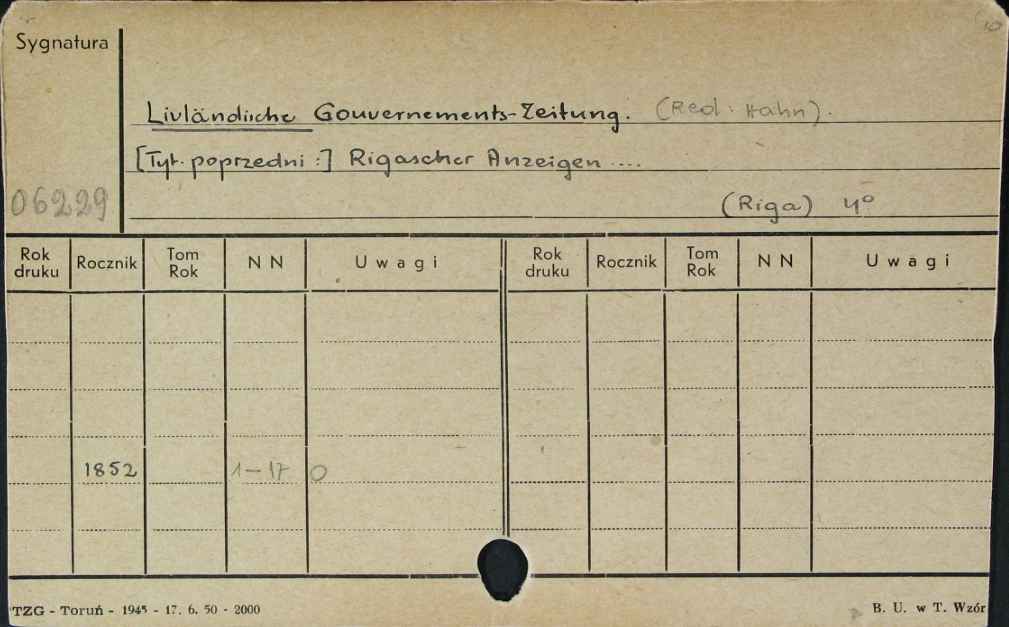 Sygnatura
Livländische Gouvernements-Zeitung. (Red. Hahn).
[Tyt. poprzedni:] Rigascher Anzeigen ....
06229
(Riga) 4°
Rok druku Rocznik Tom Rok N N Uwagi Rok druku Rocznik Tom Rok N N Uwagi
1852 1-17 0
TZG - Toruń - 1945 - 17. 6. 50 - 2000 B. U. w T. Wzór